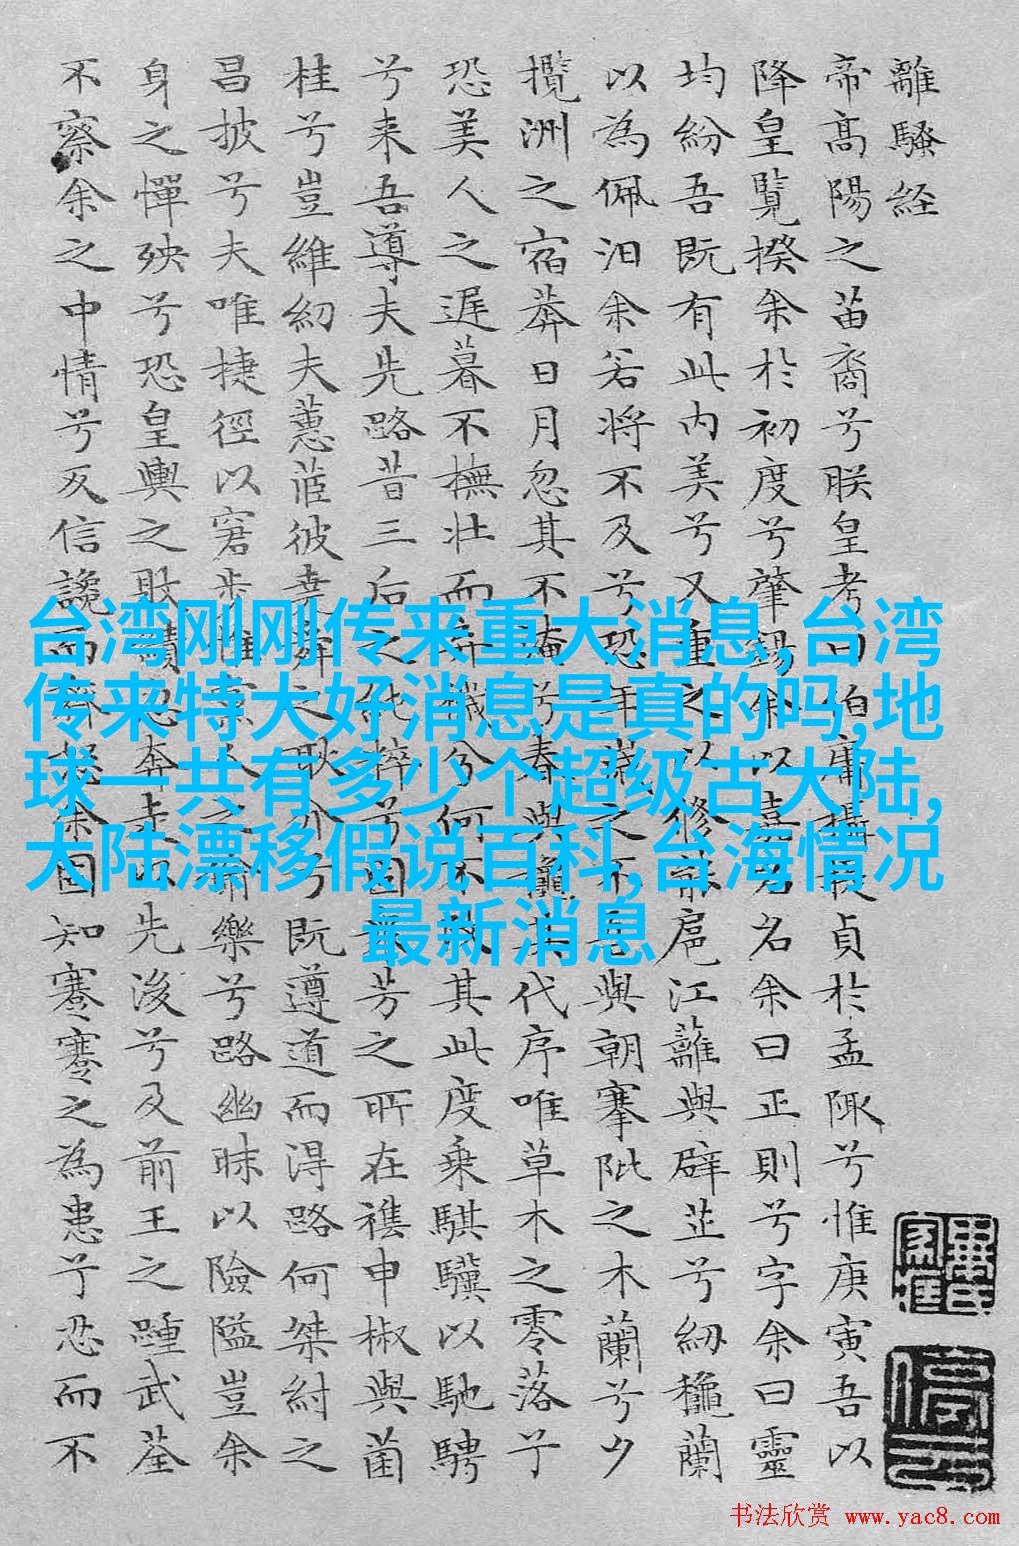 離騷経
帝高陽之苗裔兮朕皇考曰伯庸攝提貞於孟陬兮惟庚寅吾以
降皇覽揆余於初度兮肇錫余以嘉名名余曰正則兮字余曰靈
均紛吾既有此内美兮又重之以修能扈江蘺與辟芷兮紉龝蘭
以為佩汨余若將不及兮恐年歲之不吾與朝搴阰之木蘭兮夕
攬洲之宿莽日月忽其不淹兮春與龝其代序唯草木之零落兮
恐美人之遲暮不撫壯而棄穢兮何不改其此度乘騏驥以馳騁
兮来吾導夫先路昔三后之純粹兮固衆芳之所在雜申椒與菌
桂兮豈維紉夫蕙茝彼堯舜之耿介兮既遵道而得路何桀紂之
昌披兮夫唯捷徑以窘步惟黨人之偷樂兮路幽昧以險隘豈余
身之憚殃兮恐皇輿之敗績忽奔走以先後兮及前王之踵武荃
不察余之中情兮反信讒而齌怒余固知謇謇之為患兮忍而不
台湾刚刚传来重大消息,台湾
传来特大好消息是真的吗,地
球一共有多少个超级古大陆,
大陆漂移假说百科,台海情况
最新消息
书法欣赏 www.yac8.com